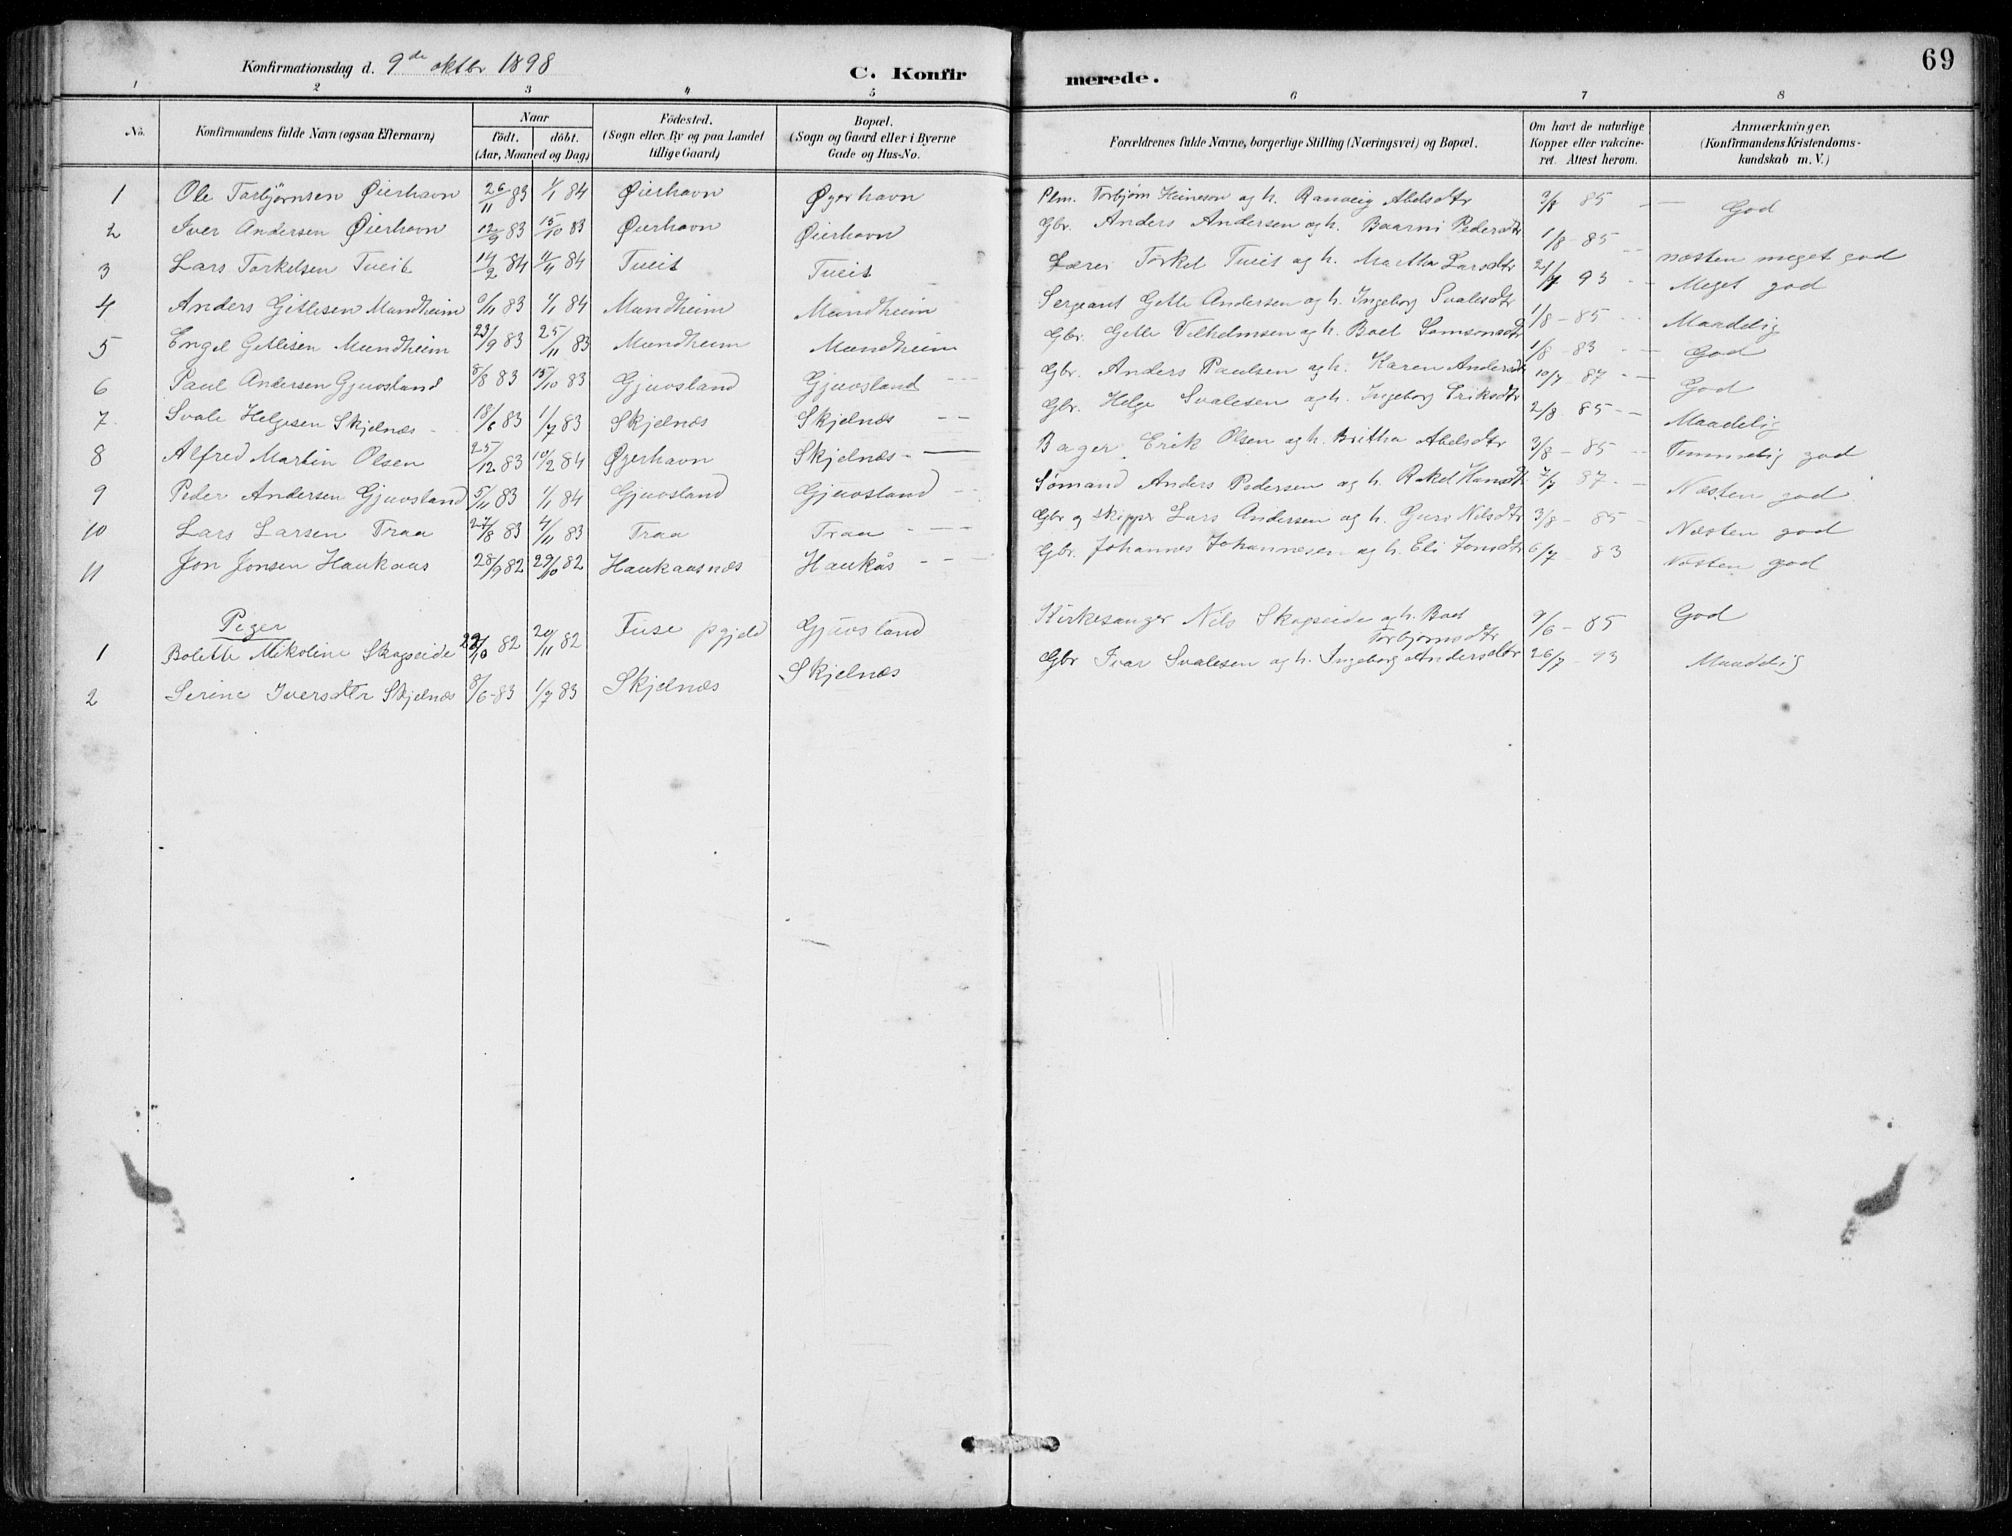 Konfirmationsdag d. 9de oktbr 1898
C. Konfirmerede.
69
1 2 3 4 5 6 7 8
No. Konfirmandens fulde Navn (ogsaa Efternavn) Naar födt. döbt. (Aar, Maaned og Dag) Födested. (Sogn eller By og paa Landet tillige Gaard) Bopæl. (Sogn og Gaard eller i Byerne Gade og Hus-No. Forældrenes fulde Navne, borgerlige Stilling (Næringsvei) og Bopæl. Om havt de naturlige Kopper eller vakcineret. Attest herom. Anmærkninger. (Konfirmandens Kristendomskundskab m. V.)
1 Ole Torbjørnsen Øierhavn 26/11 83 1/1 84 Øierhavn Øyerhavn Plm. Torbjørn Heineson og h. Ranveig Abelsdtr 3/8 85 — God
2 Iver Andersen Øierhavn 12/9 83 15/10 83 Øierhavn Øierhavn Gbr. Anders Andersen og h. Baarni Pedersdtr 1/8 – 85 -- næsten meget god
3 Lars Torkelsen Tveit 14/2 84 11/4 84 Tveit Tveit Lærer Torkel Tveit og h. Martha Larsdtr 21/7 93 - - Meget god
4 Anders Gitlesen Mundheim 6/11 83 1/1 84 Mundheim Mundheim Sergeant Gitle Andersen og h. Ingeborg Svalesdtr 1/8 – 85 -- Maadelig
5 Engel Gitlesen Mundheim 23/9 83 25/11 83 Mundheim Mundheim Gbr. Gitle Vilhelmsen og h. Boel Samsonsdtr 1/8 – 83 - — God
6 Paul Andersen Gjuvsland 8/8 83 15/10 83 Gjuvsland Gjuvsland -- Gbr. Anders Paulsen og h. Karen Andersdtr 10/7 87 - — God
7. Svale Helgesen Skjelnæs - 18/6 83 1/7 83 Skjelnæs Skjelnæs -- Gbr. Helge Svalesen og h. Ingeborg Eriksdtr 2/8 85 -- Maadelig
8 Alfred Martin Olsen 25/12 83 10/2 84 Øyerhavn Skjelnæs - — Bager Erik Olsen og h. Britha Abelsdtr 3/8 – 85 -- Temmelig god
9 Peder Andersen Gjuvsland 5/11 83 1/1 84 Gjuvsland Gjuvsland -- Sömand Anders Pedersen og h. Rakel Hansdtr 7/7 87 - - Næsten god
10 Lars Larsen Traa 27/8 83 4/11 83 Traa Traa --- Gbr og skipper Lars Andersen og h. Guri Nilsdtr 3/8 – 85 - Næsten god
11 Jon Jonsen Haukaas 28/9 82 29/10 82 Haukaasnæs Haukås -- Gbr. Johannes Johannesen og h. Eli Jonsdtr 6/7 – 83 Næsten god
Piger
1 Bolette Nikoline Skogseide 22/10 82 20/11 82 Fuse pgjeld Gjuvsland Kirkesanger Nils Skogseide og h. Boel Torbjørnsdtr 9/6 – 85 God
2 Serine Iversdtr Skjelnæs 8/6 – 83 1/7 83 Skjelnæs Skjelnæs Gbr Ivar Svalesen og h. Ingeborg Andersdtr 26/7 – 93 Maadelig